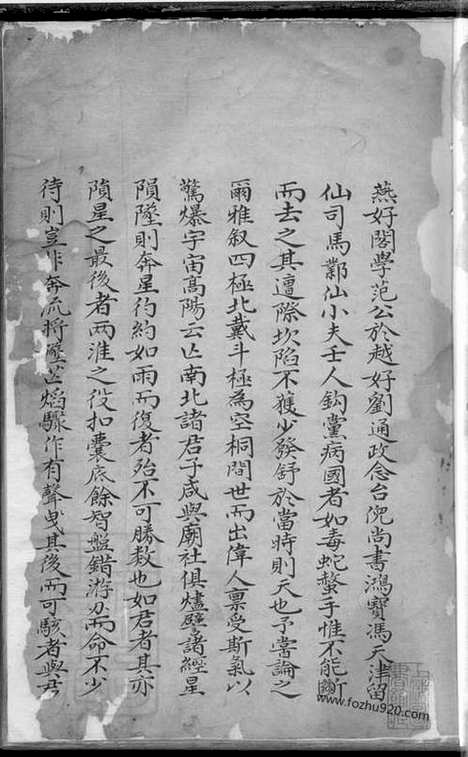 燕好閣學范公於越好劉通政念台倪尚書鴻寶馮天津留
仙司馬鄴仙小夫壬人鈎黨病國者如毒蛇螫手惟不能斷
而去之其遭際坎陷不獲少發舒於當時則天也予嘗論之
爾雅叙四極北戴斗極為空桐間世而出偉人禀受斯氣以
驚爆宇宙高陽云亡南北諸君子咸與廟社俱燼譬諸經星
隕墜則奔星彴約如雨而復者殆不可勝数也如君者其亦
隕星之最後者两淮之役扣囊底餘智盤錯游刃而命不少
待則豈非奔流所墜芒焰驟作有聲曳其後而可駭者與君
www.fozhu920.com